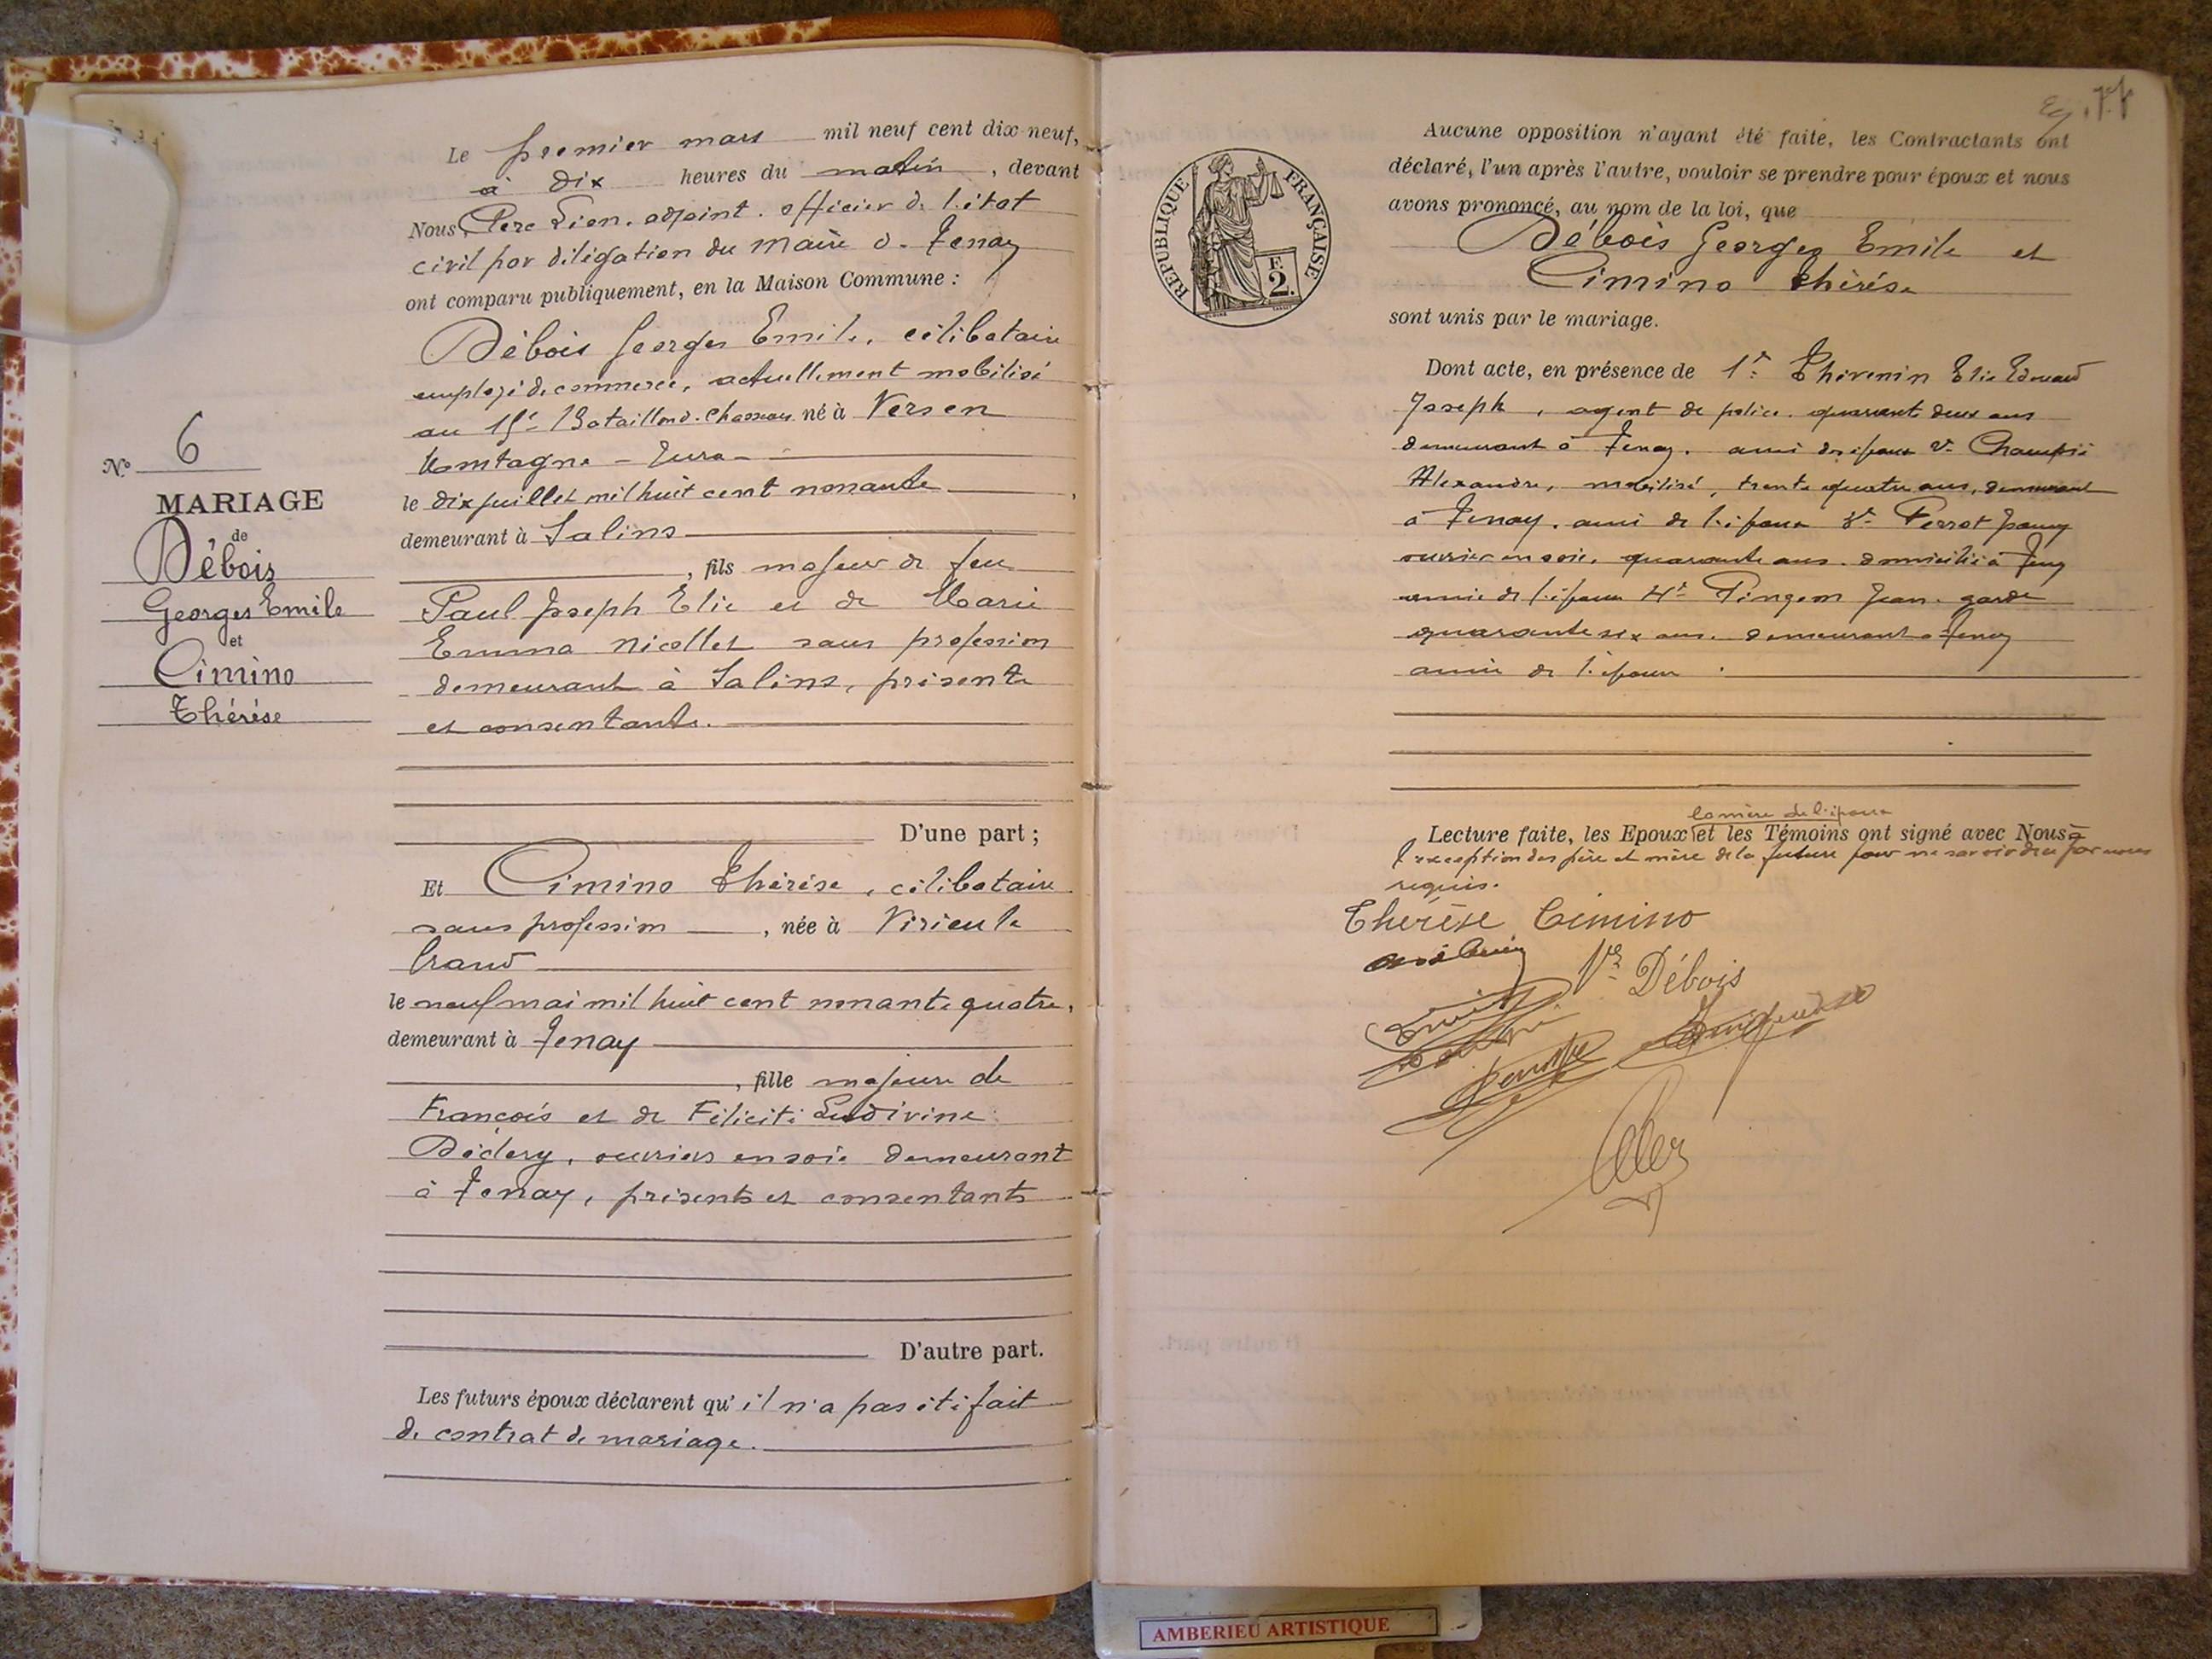 N° 6
MARIAGE
de
Débois
Georges Emile
et
Cimino
Thérèse
Le premier mars mil neuf cent dix-neuf,
à dix heures du matin, devant
Nous, adjoint. officier de l'état
civil par délégation du Maire de Tenay
ont comparu publiquement, en la Maison Commune :
Débois Georges Emile, célibataire
employé de commerce, actuellement mobilisé
au 15e Bataillon de Chasseurs né à Vers en
Montagne - Jura -
le dix juillet mil huit cent nonante,
demeurant à Salins
, fils majeur de feu
Paul Joseph Elie et de Marie
Emma Nicollet sans profession
demeurant à Salins, présente
et consentante.
D'une part ;
Et Cimino Thérèse, célibataire
sans profession, née à Virieu le
Grand
le neuf mai mil huit cent nonante quatre,
demeurant à Tenay
, fille majeure de
François et de Félicité Ludivine
Dédery, ouvriers en soie demeurant
à Tenay, présents et consentants
D'autre part.
Les futurs époux déclarent qu'il n'a pas été fait
de contrat de mariage.
REPUBLIQUE FRANÇAISE
F.
2.
Aucune opposition n'ayant été faite, les Contractants ont
déclaré, l'un après l'autre, vouloir se prendre pour époux et nous
avons prononcé, au nom de la loi, que
Débois Georges Emile et
Cimino Thérèse
sont unis par le mariage.
Dont acte, en présence de 1° Thévenin Elie Edouard
Joseph, agent de police. quarante deux ans
demeurant à Tenay. ami des époux 2°
Alexandre, mobilisé, trente quatre ans, demeurant
à Tenay. ami de l'époux 3° Perrot
ouvrier en soie, quarante ans. domicilié à Tenay
amie de l'époux 4° Pingeon Jean. garde
quarante six ans. demeurant à Tenay
amie de l'époux.
la mère de l'époux
Lecture faite, les Epoux et les Témoins ont signé avec Nous à
l'exception des père et mère de la future pour ne savoir de ce par nous
requis.
Thérèse Cimino
Vve Débois
AMBERIEU ARTISTIQUE